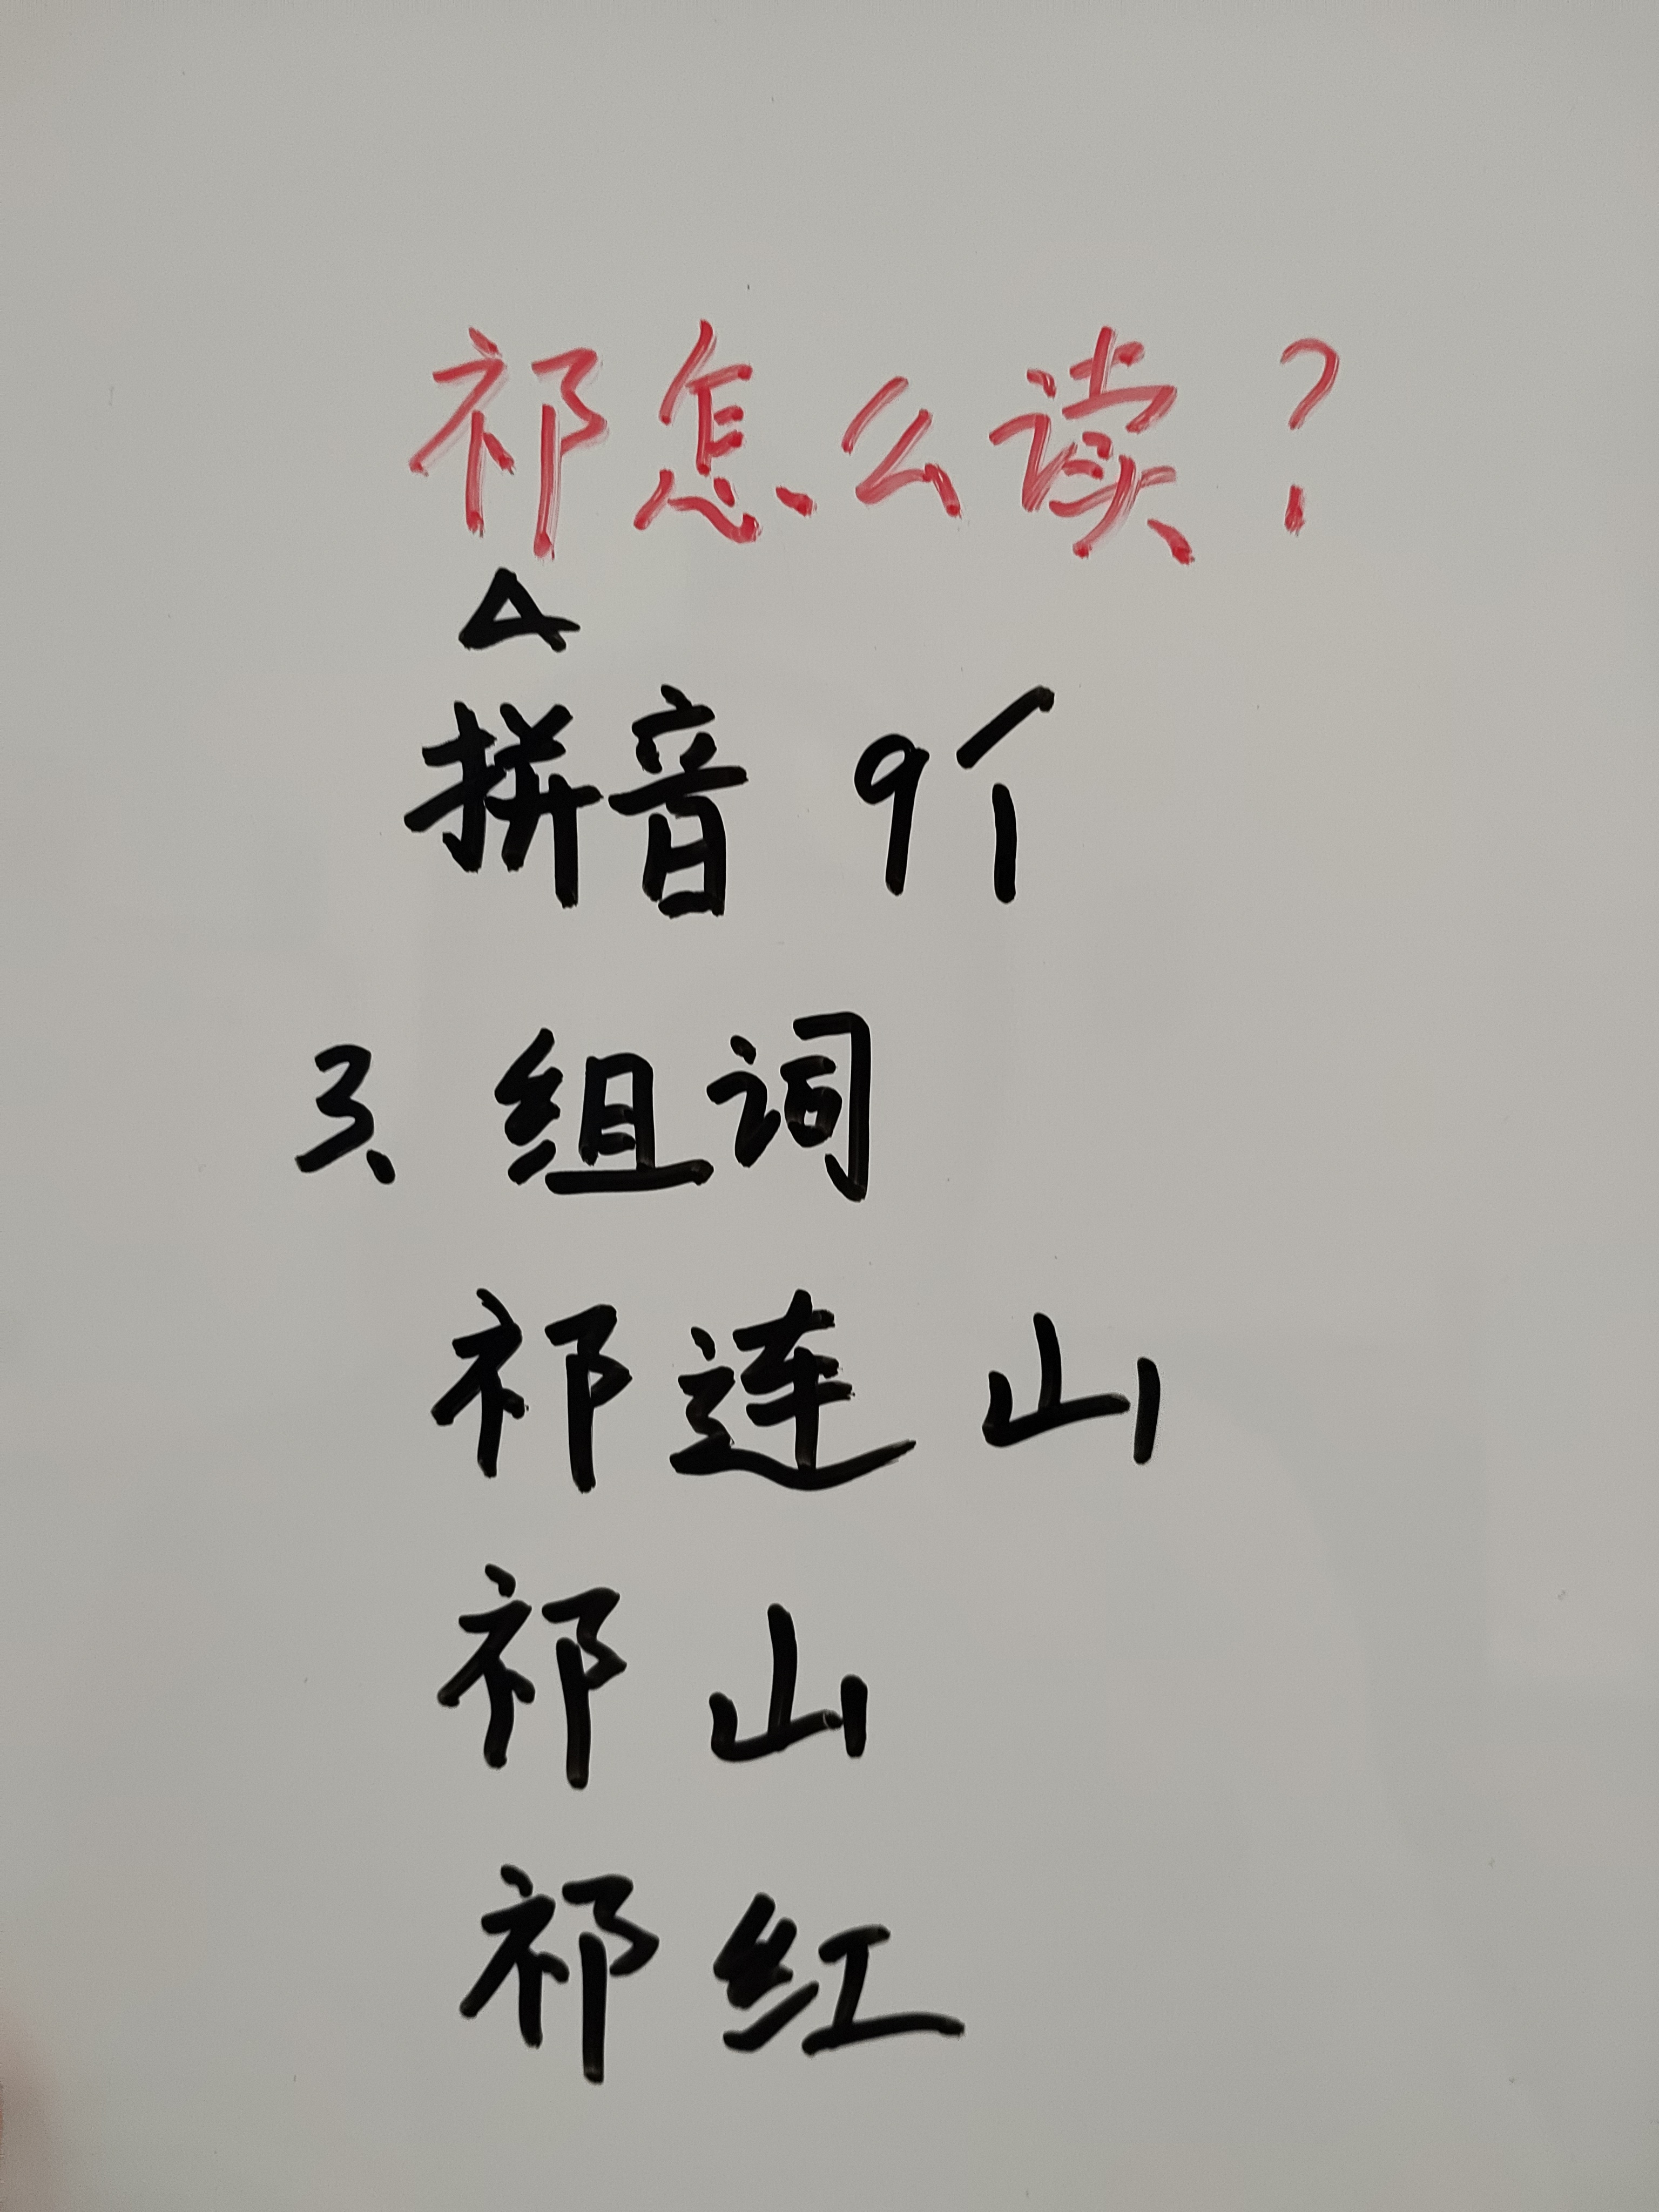 祁怎么读？
△
拼音 qí
3、组词
祁连山
祁山
祁红